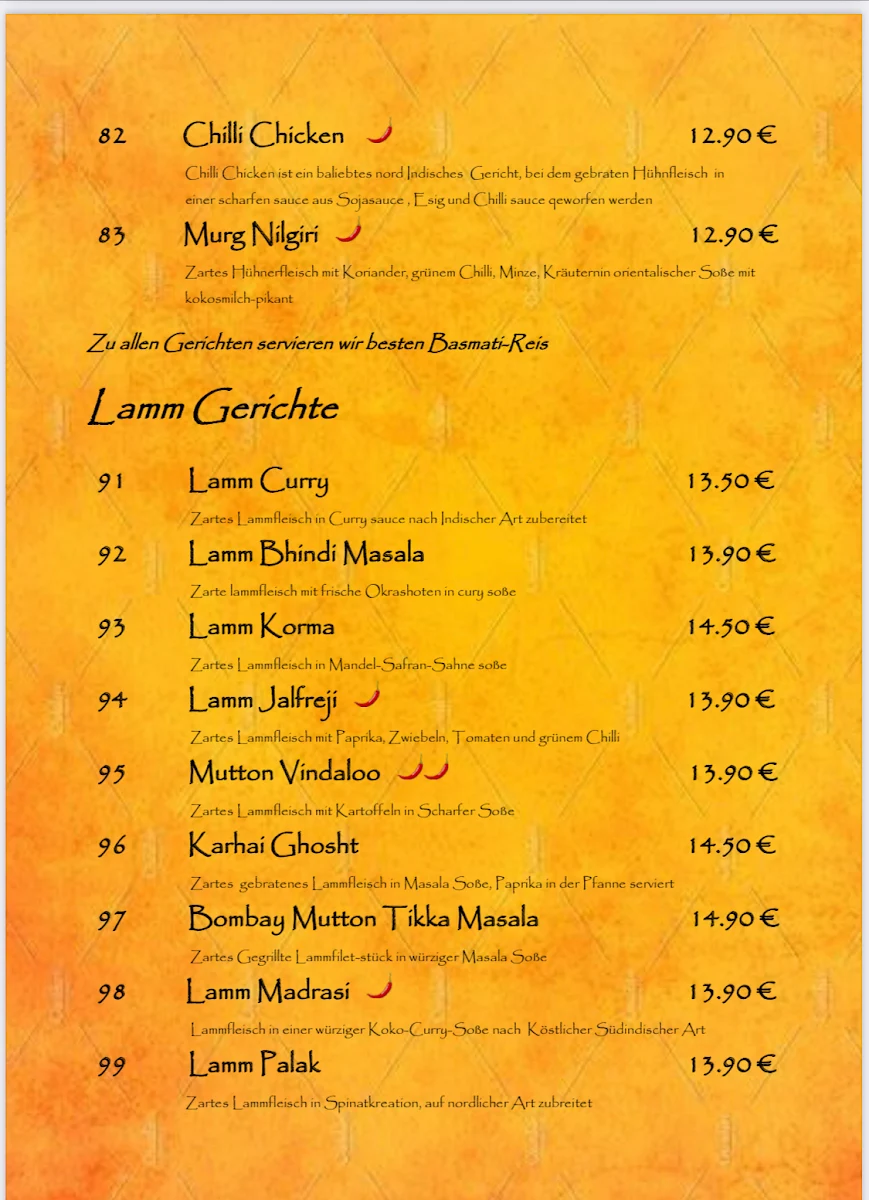 82 Chilli Chicken 12.90 €
Chilli Chicken ist ein baliebtes nord Indisches Gericht, bei dem gebraten Hühnfleisch in
einer scharfen sauce aus Sojasauce , Esig und Chilli sauce qeworfen werden
83 Murg Nilgiri 12.90 €
Zartes Hühnerfleisch mit Koriander, grünem Chilli, Minze, Kräuternin orientalischer Soße mit
kokosmilch-pikant
Zu allen Gerichten servieren wir besten Basmati-Reis
Lamm Gerichte
91 Lamm Curry 13.50 €
Zartes Lammfleisch in Curry sauce nach Indischer Art zubereitet
92 Lamm Bhindi Masala 13.90 €
Zarte lammfleisch mit frische Okrashoten in cury soße
93 Lamm Korma 14.50 €
Zartes Lammfleisch in Mandel-Safran-Sahne soße
94 Lamm Jalfreji 13.90 €
Zartes Lammfleisch mit Paprika, Zwiebeln, Tomaten und grünem Chilli
95 Mutton Vindaloo 13.90 €
Zartes Lammfleisch mit Kartoffeln in Scharfer Soße
96 Karhai Ghosht 14.50 €
Zartes gebratenes Lammfleisch in Masala Soße, Paprika in der Pfanne serviert
97 Bombay Mutton Tikka Masala 14.90 €
Zartes Gegrillte Lammfilet-stück in würziger Masala Soße
98 Lamm Madrasi 13.90 €
Lammfleisch in einer würziger Koko-Curry-Soße nach Köstlicher Südindischer Art
99 Lamm Palak 13.90 €
Zartes Lammfleisch in Spinatkreation, auf nordlicher Art zubreitet